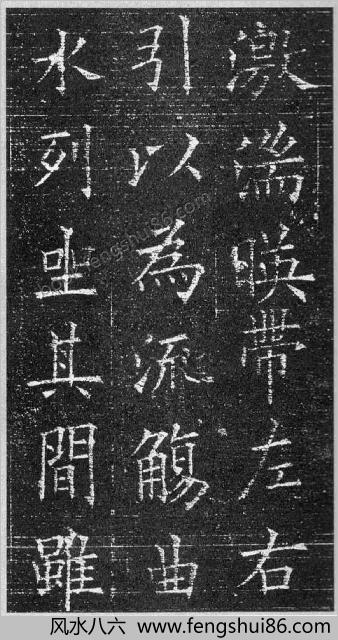 激湍暎帶左右
引以為流觴曲
水列坐其間雖
www.fengshui86.com
风水八六 www.fengshui86.com